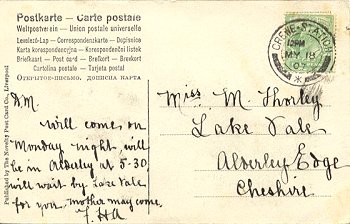 Postkarte – Carte postale
Weltpostverein – Union postale universelle
Levelező-Lap – Correspondenzkarte – Dopisnice
Karta korespondencyjna – Korespondenční listek
Briefkaart – Post card – Brefkort – Brevkort
Cartolina postale – Tarjeta postal
Открытое письмо. Дописна карта
Published by The Novelty Post Card Co., Liverpool
CREWE-STATION
MY 18
D.M.
Will come on
Monday night, will
be in Alderley at 5-30
will wait by Lake Vale
for you, mother may come.
F.H.A
Miss M. Thorley
Lake Vale
Alderley Edge
Cheshire